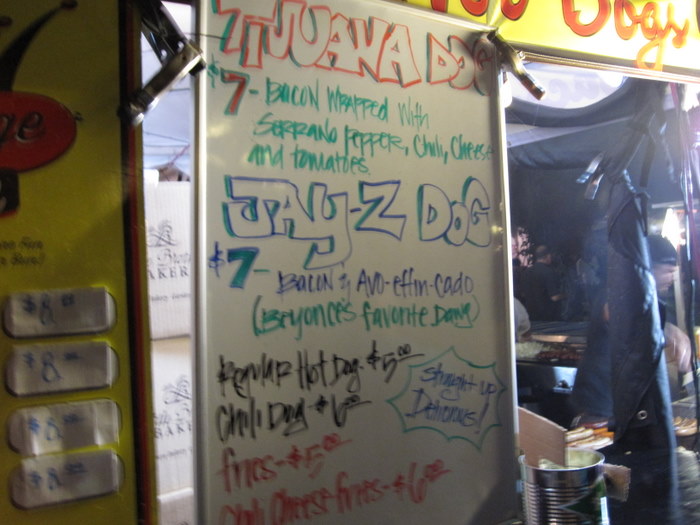 Dogs
TIJUANA DOG
$7- BACON WRAPPED With
SERRANO PEPPER, Chili, Cheese
and tomatoes.
JAY-Z DOG
$7-
BACON & AVO-effin-CADO
(Beyonce's favorite Dawg)
Regular Hot Dog- $5.00
Chili Dog- $6.00
Straight up
Delicious!
fries- $5.00
Chili Cheese fries- $6.00
$8.00
$8.00
$8.00
$8.00
BAKER
BAKER